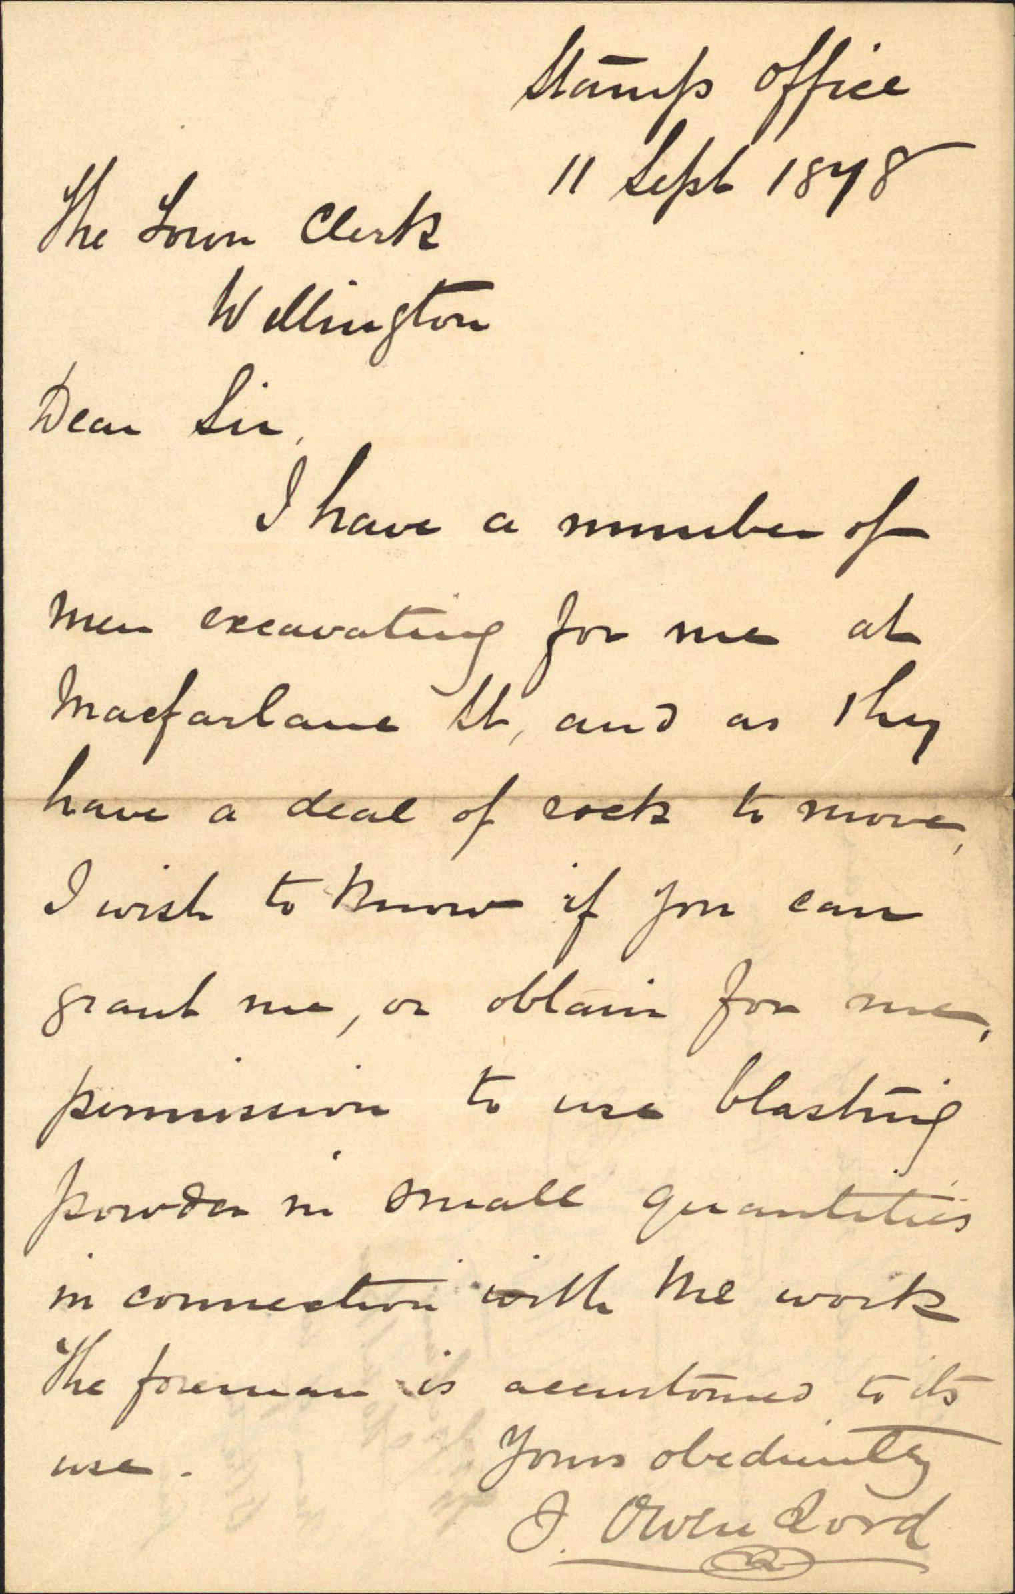 Stamps Office
11 Sept 1878
The Town Clerk
Wellington
Dear Sir,
I have a number of
men excavating for me at
Macfarlane St, and as they
have a deal of rock to move,
I wish to know if you can
grant me, or obtain for me,
permission to use blasting
powder in small quantities
in connection with the work
The foreman is accustomed to its
use.
Yours obediently
J. Owen Lord